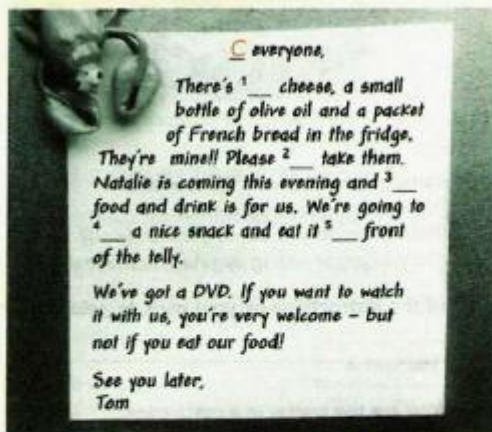 C everyone,
There's 1__ cheese, a small
bottle of olive oil and a packet
of French bread in the fridge.
They're mine!! Please 2__ take them.
Natalie is coming this evening and 3__
food and drink is for us. We're going to
4__ a nice snack and eat it 5__ front
of the telly.
We've got a DVD. If you want to watch
it with us, you're very welcome – but
not if you eat our food!
See you later,
Tom